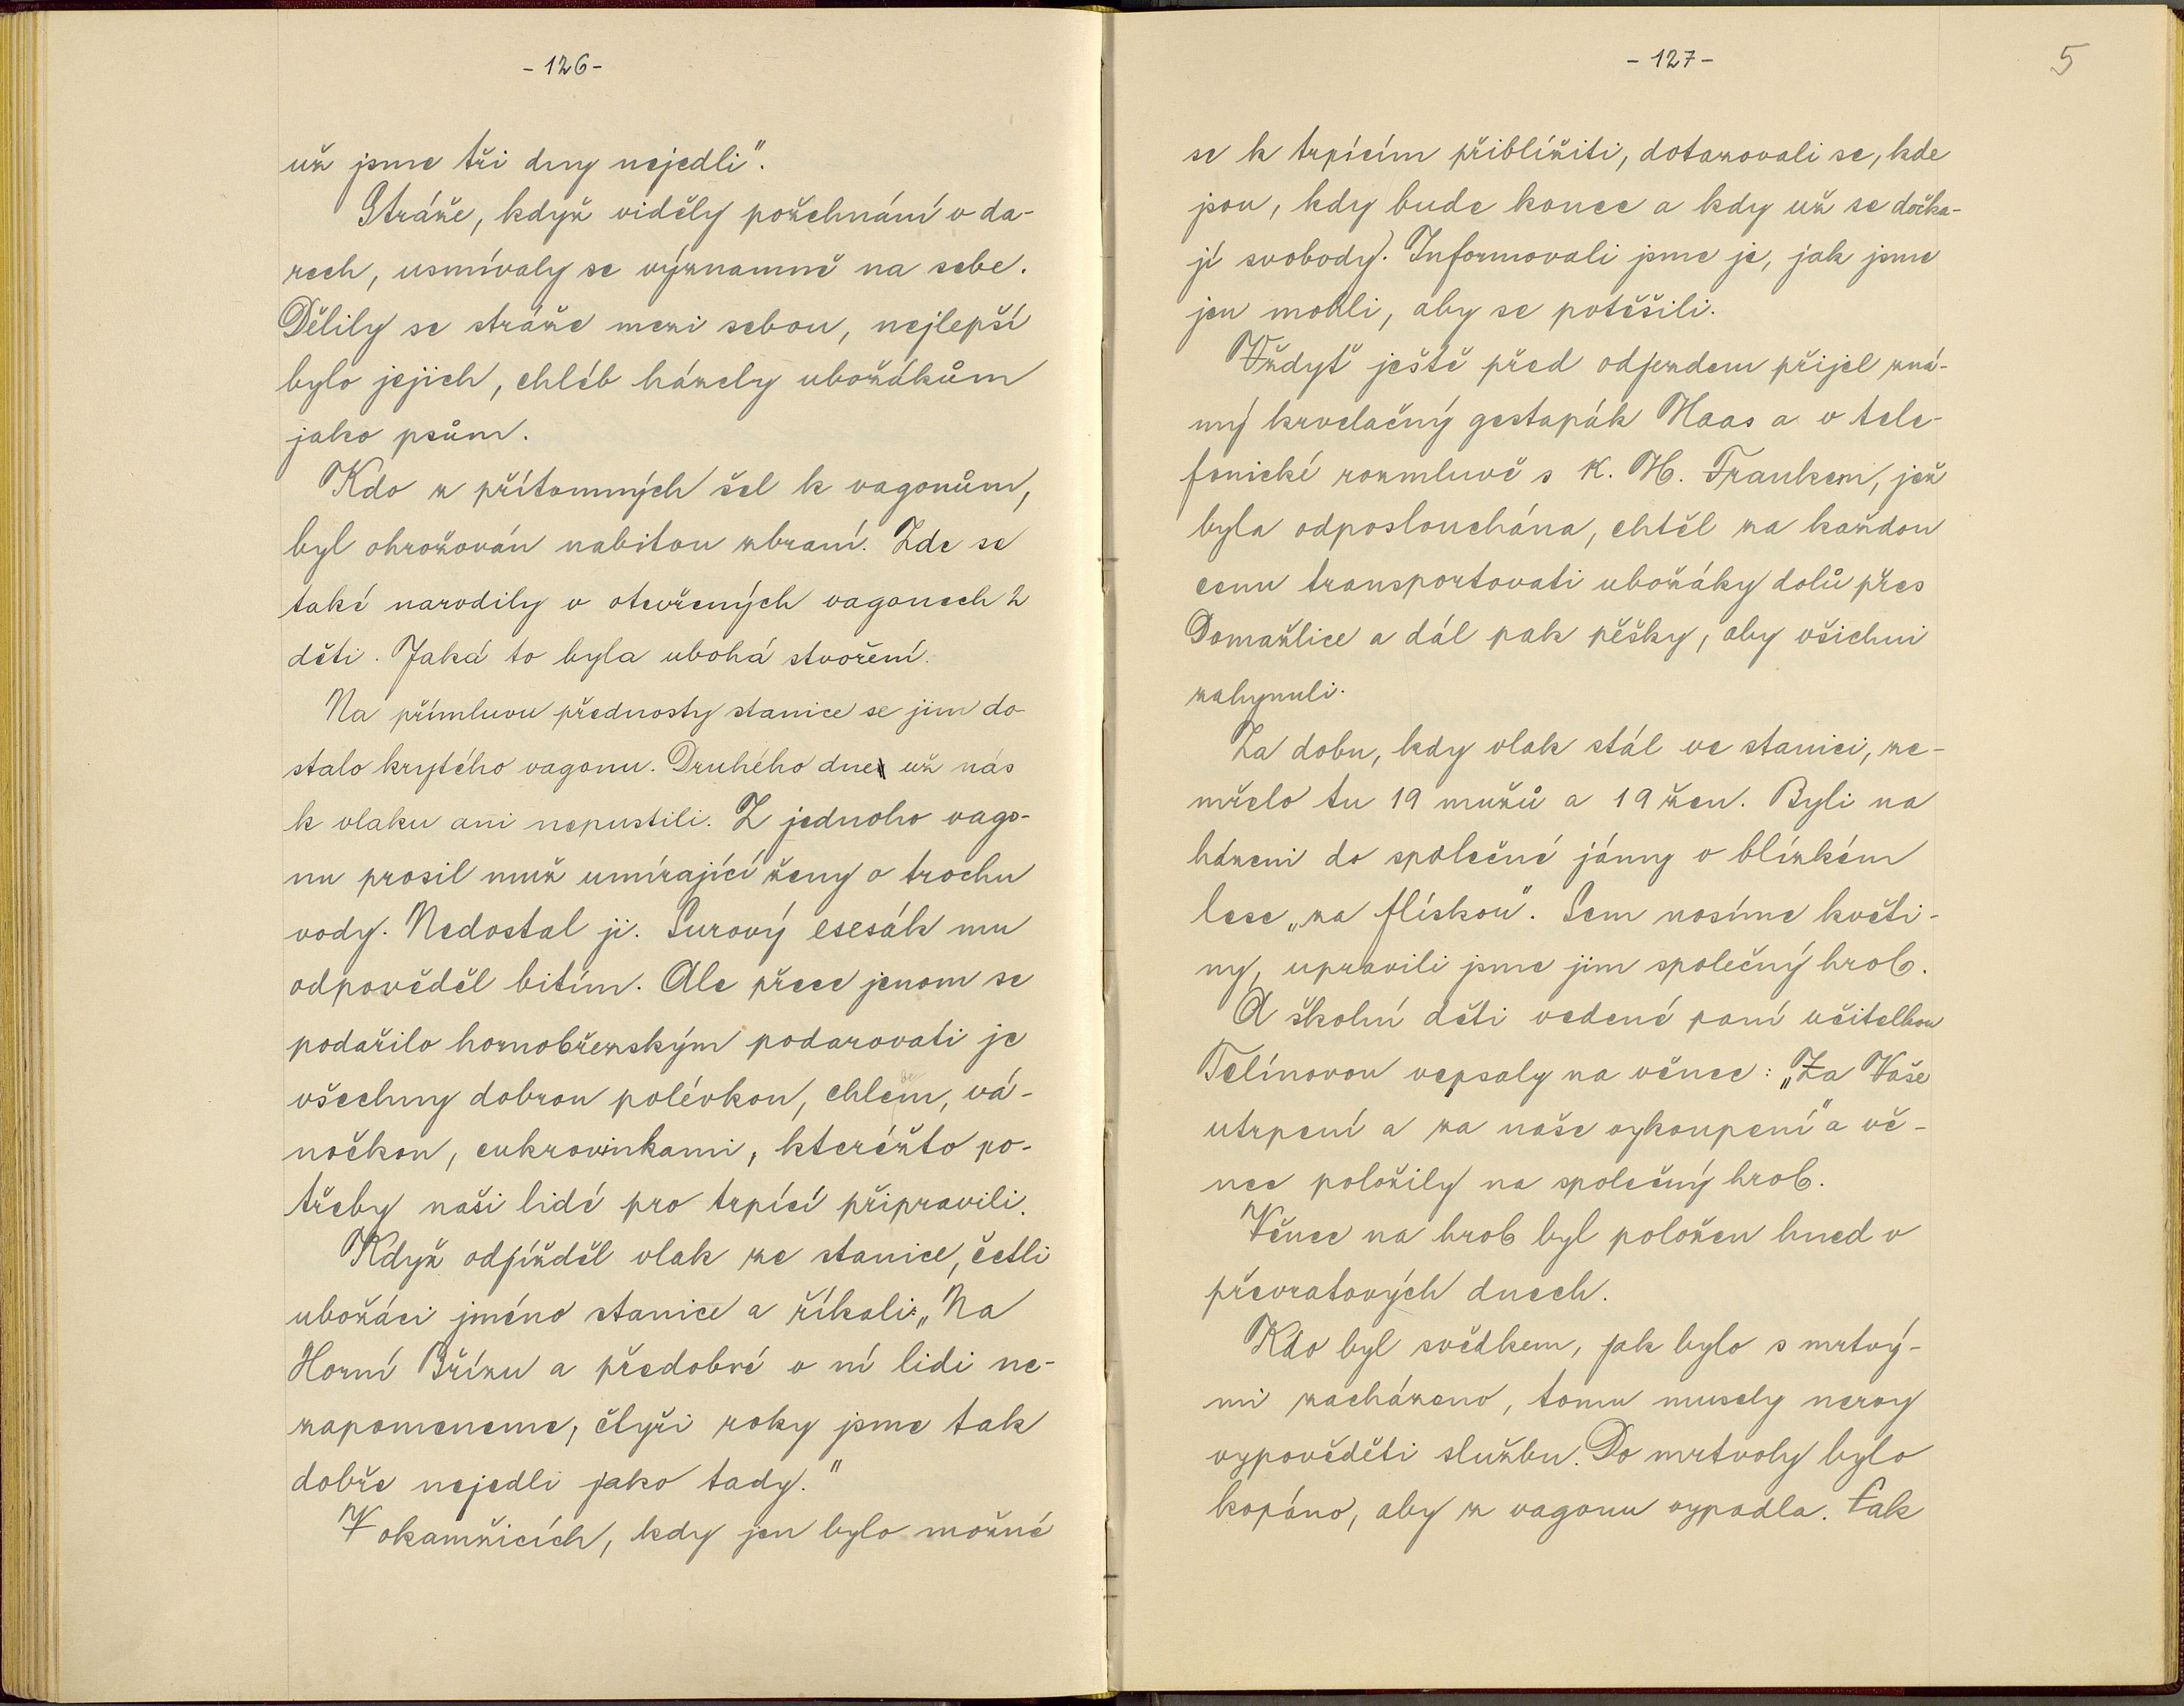 - 126 -
už jsme tři dny nejedli".
Stráže, když viděly požehnání v da-
rech, usmívaly se významně na sebe.
Dělily se stráže mezi sebou, nejlepší
bylo jejich, chléb házely ubožákům
jako psům.
Kdo z přítomných šel k vagonům,
byl ohrožován nabitou zbraní. Zde se
také narodily v otevřených vagonech 2
děti. Jaká to byla ubohá stvoření.
Na přímluvu přednosty stanice se jim do-
stalo krytého vagonu. Druhého dne už nás
k vlaku ani nepustili. Z jednoho vago-
nu prosil muž umírající ženy o trochu
vody. Nedostal ji. Surový esesák mu
odpověděl bitím. Ale přece jenom se
podařilo hornobřezským podarovati je
všechny dobrou polévkou, chlebem, vá-
nočkou, cukrovinkami, kteréžto po-
třeby naši lidé pro trpící připravili.
Když odjížděl vlak ze stanice, četli
ubožáci jméno stanice a říkali: „Na
Horní Břízu a předobré v ní lidi ne-
zapomeneme, čtyři roky jsme tak
dobře nejedli jako tady."
V okamžicích, kdy jen bylo možné
- 127 -
5
se k trpícím přiblížiti, dotazovali se, kde
jsou, kdy bude konec a kdy už se dočka-
jí svobody. Informovali jsme je, jak jsme
jen mohli, aby se potěšili.
Vždyť ještě před odjezdem přijel zná-
mý krvelačný gestapák Haas a v tele-
fonické rozmluvě s K. H. Frankem, jež
byla odposlouchána, chtěl za každou
cenu transportovati ubožáky dolů přes
Domažlice a dál pak pěšky, aby všichni
zahynuli.
Za dobu, kdy vlak stál ve stanici, ze-
mřelo tu 19 mužů a 19 žen. Byli na
házeni do společné jámy v blízkém
lese „za flískou". Sem nosíme květi-
ny, upravili jsme jim společný hrob.
A školní děti vedené paní učitelkou
Telínovou vepsaly na věnec: „Za Vaše
utrpení a za naše vykoupení" a vě-
nec položily na společný hrob.
Věnec na hrob byl položen hned v
převratových dnech.
Kdo byl svědkem, jak bylo s mrtvý-
mi zacházeno, tomu musely nervy
vypověděti službu. Do mrtvoly bylo
kopáno, aby z vagonu vypadla. Tak